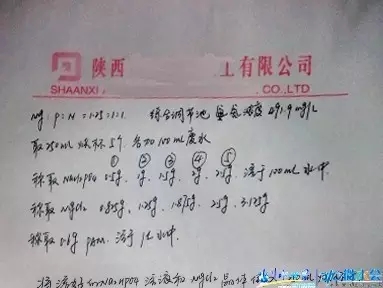 陕西 工有限公司
SHAANXI CO.,LTD
Mg:P:N=1.25:1:1 综合调节池 氨氮浓度 491.9mg/L
取250mL烧杯5个.各加100mL废水
① ② ③ ④ ⑤
称取NaH2PO4 0.5g. 1g. 1.5g. 2g. 2.5g. 溶于100mL水中.
称取MgCl2 0.625g. 1.25g. 1.875g 2.5g. 3.125g
称取 PAM. 溶于1L水中.
将 NaH2PO4溶液和MgCl2